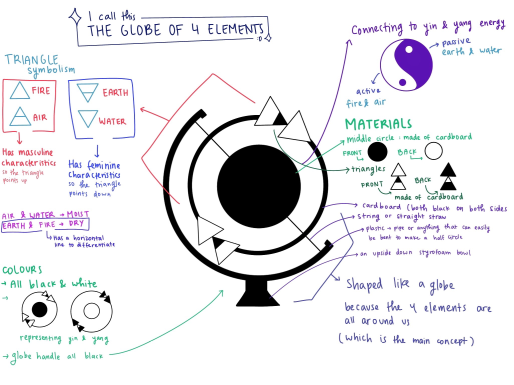 I call this
THE GLOBE OF 4 ELEMENTS
TRIANGLE
symbolism
FIRE
AIR
EARTH
WATER
Has masculine
characteristics
so the triangle
points up
Has feminine
characteristics
so the triangle
points down
AIR & WATER → MOIST
EARTH & FIRE → DRY
has a horizontal
line to differentiate
COLOURS
→ All black & white
→
representing yin & yang
→ globe handle all black
Connecting to yin & yang energy
→ passive
earth & water
active
fire & air
MATERIALS
middle circle : made of cardboard
FRONT
BACK
triangles
FRONT
BACK
made of cardboard
cardboard (both black on both sides
string or straight straw
plastic pipe or anything that can easily
be bent to make a half circle
an upside down styrofoam bowl
Shaped like a globe
because the 4 elements are
all around us
(which is the main concept)